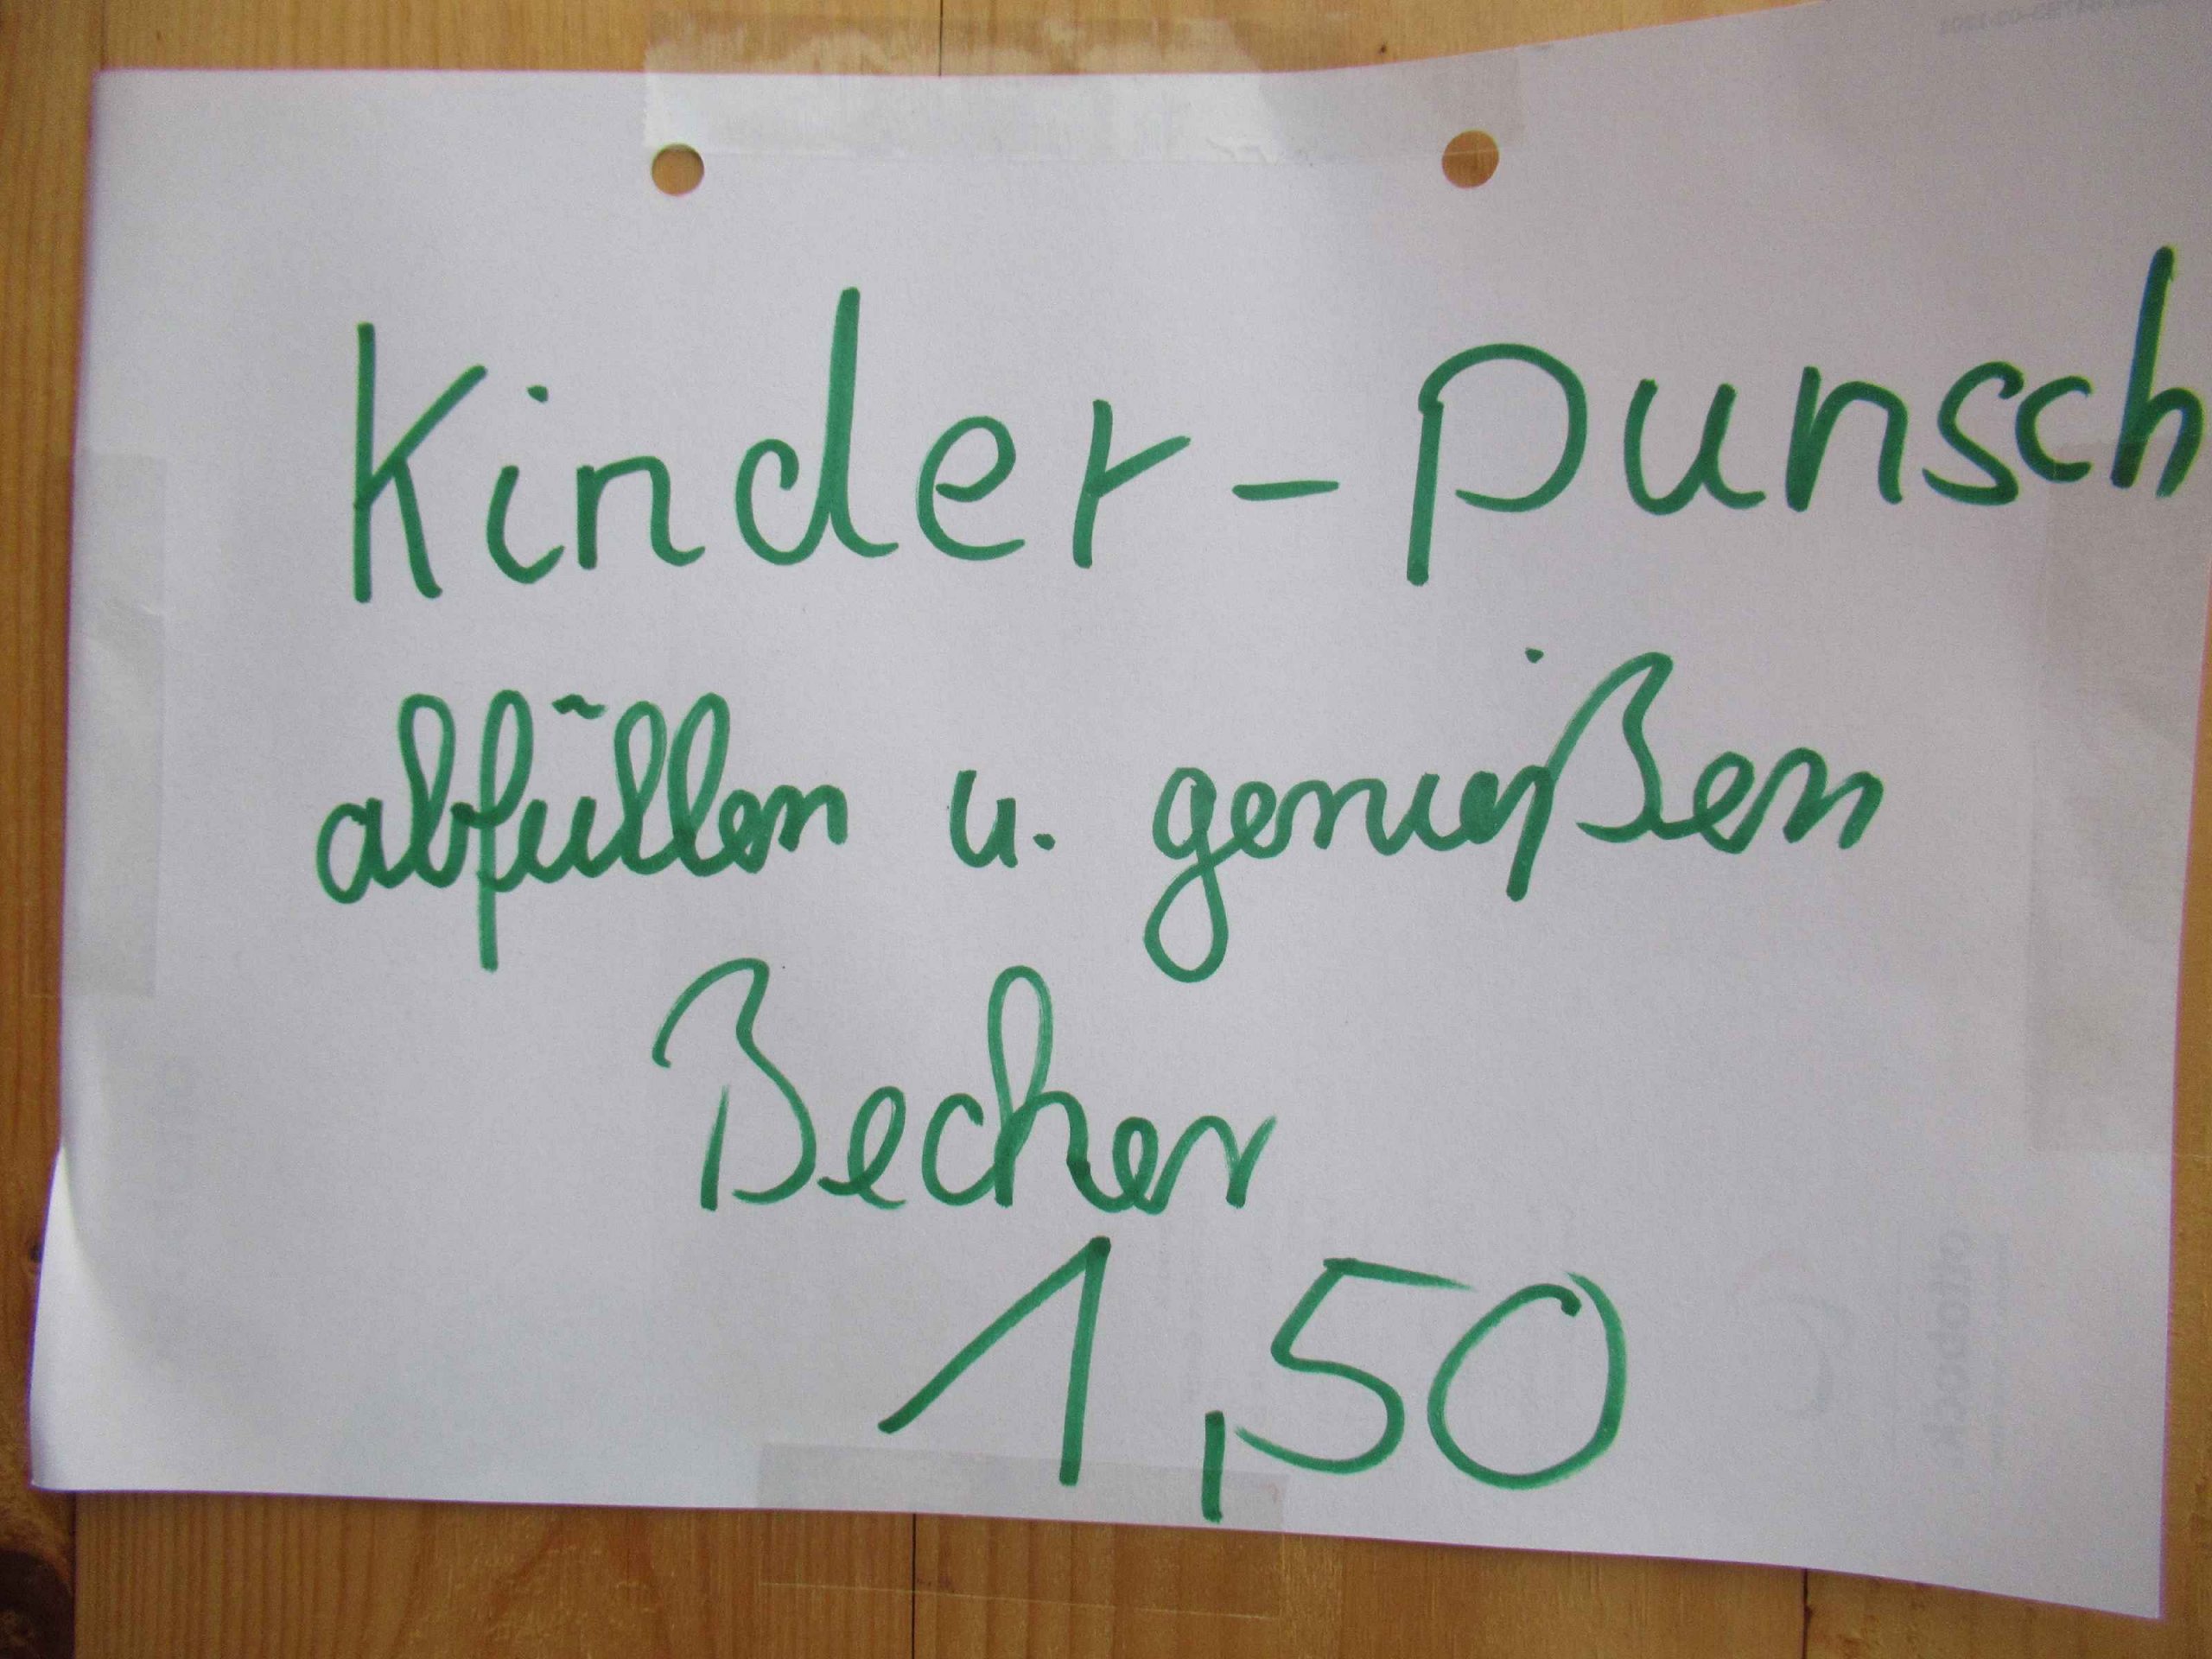 Kinder-Punsch
abfüllen u. genießen
Becher
1,50